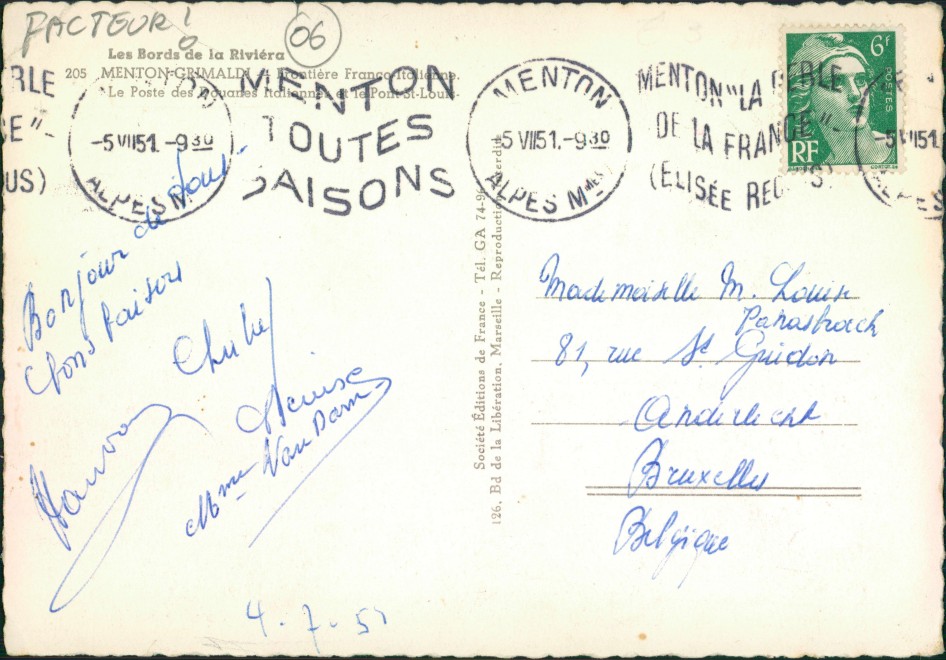 FACTEUR!
06
Les Bords de la Riviéra
205 MENTON-GRIMALDI - Frontière Franco-Italienne.
Le Poste des Douanes Italiennes et le Pont St-Louis
MENTON
-5 VII 51.-9 30
ALPES
MENTON
TOUTES
SAISONS
MENTON
-5 VII 51.-9 30
ALPES Mmes
MENTON "LA PERLE
DE LA FRANCE"-
(ELISÉE RECLUS)
6f
POSTES
RF
Bonjour de tous
bons baisers
Denise
Mme Van Dam
4-7-51
Société Éditions de France - Tél. GA 74-9
126, Bd de la Libération, Marseille - Reproduction interdite
Mademoiselle M. Louise
81, rue St Guidon
Anderlecht
Bruxelles
Belgique